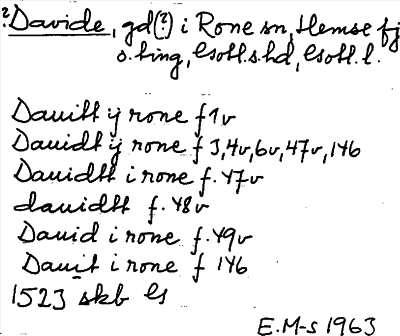 ? Davide, gd(?) i Rone sn, Hemse fj
o. ting, Gotl.s.hd, Gotl. l.
Dauitt ÿ rone f 1v
Dauidt ÿ rone f 3, 4v, 6v, 47v, 146
Dauidtt i rone f. 47v
dauidtt f. 48v
Dauid i rone f. 49v
Dauit i rone f 146
1523 skb G
E.M-s 1963